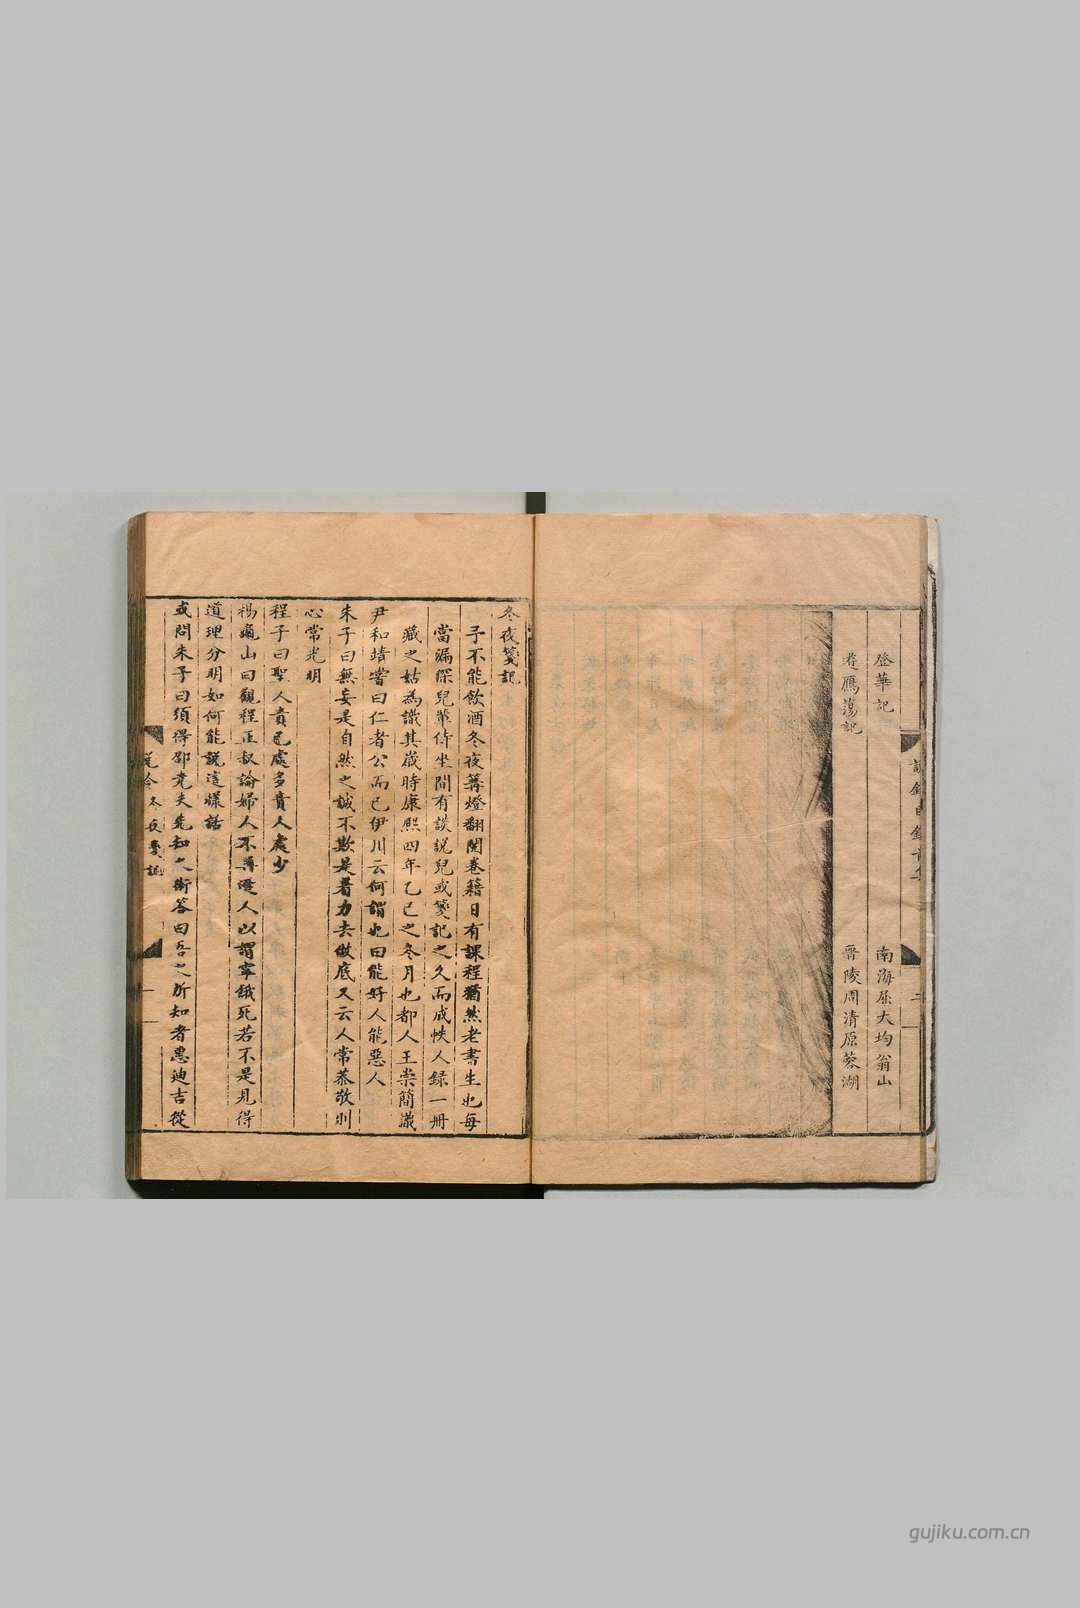 登華記 南海屈大均翁山
遊鴈蕩記 晉陵周清原蓉湖
冬夜箋記
予不能飲酒冬夜篝燈翻閱卷籍日有課程猶然老書生也每
當漏深兒輩侍坐間有談說兒或箋記之久而成帙人錄一冊
藏之姑為識其嵗時康熙四年乙巳之冬月也都人王崇簡識
尹和靖嘗曰仁者公而已伊川云何謂也曰能好人能惡人
朱子曰無妄是自然之誠不欺是着力去做底又云人常恭敬則
心常光明
程子曰聖人責己處多責人處少
楊龜山曰觀程正叔論婦人不再適人以謂寧餓死若不是見得
道理分明如何能說這樣話
或問朱子曰須得邵堯夫先知之術答曰吾之所知者惠迪吉從
說鈴 冬夜箋記
gujiku.com.cn